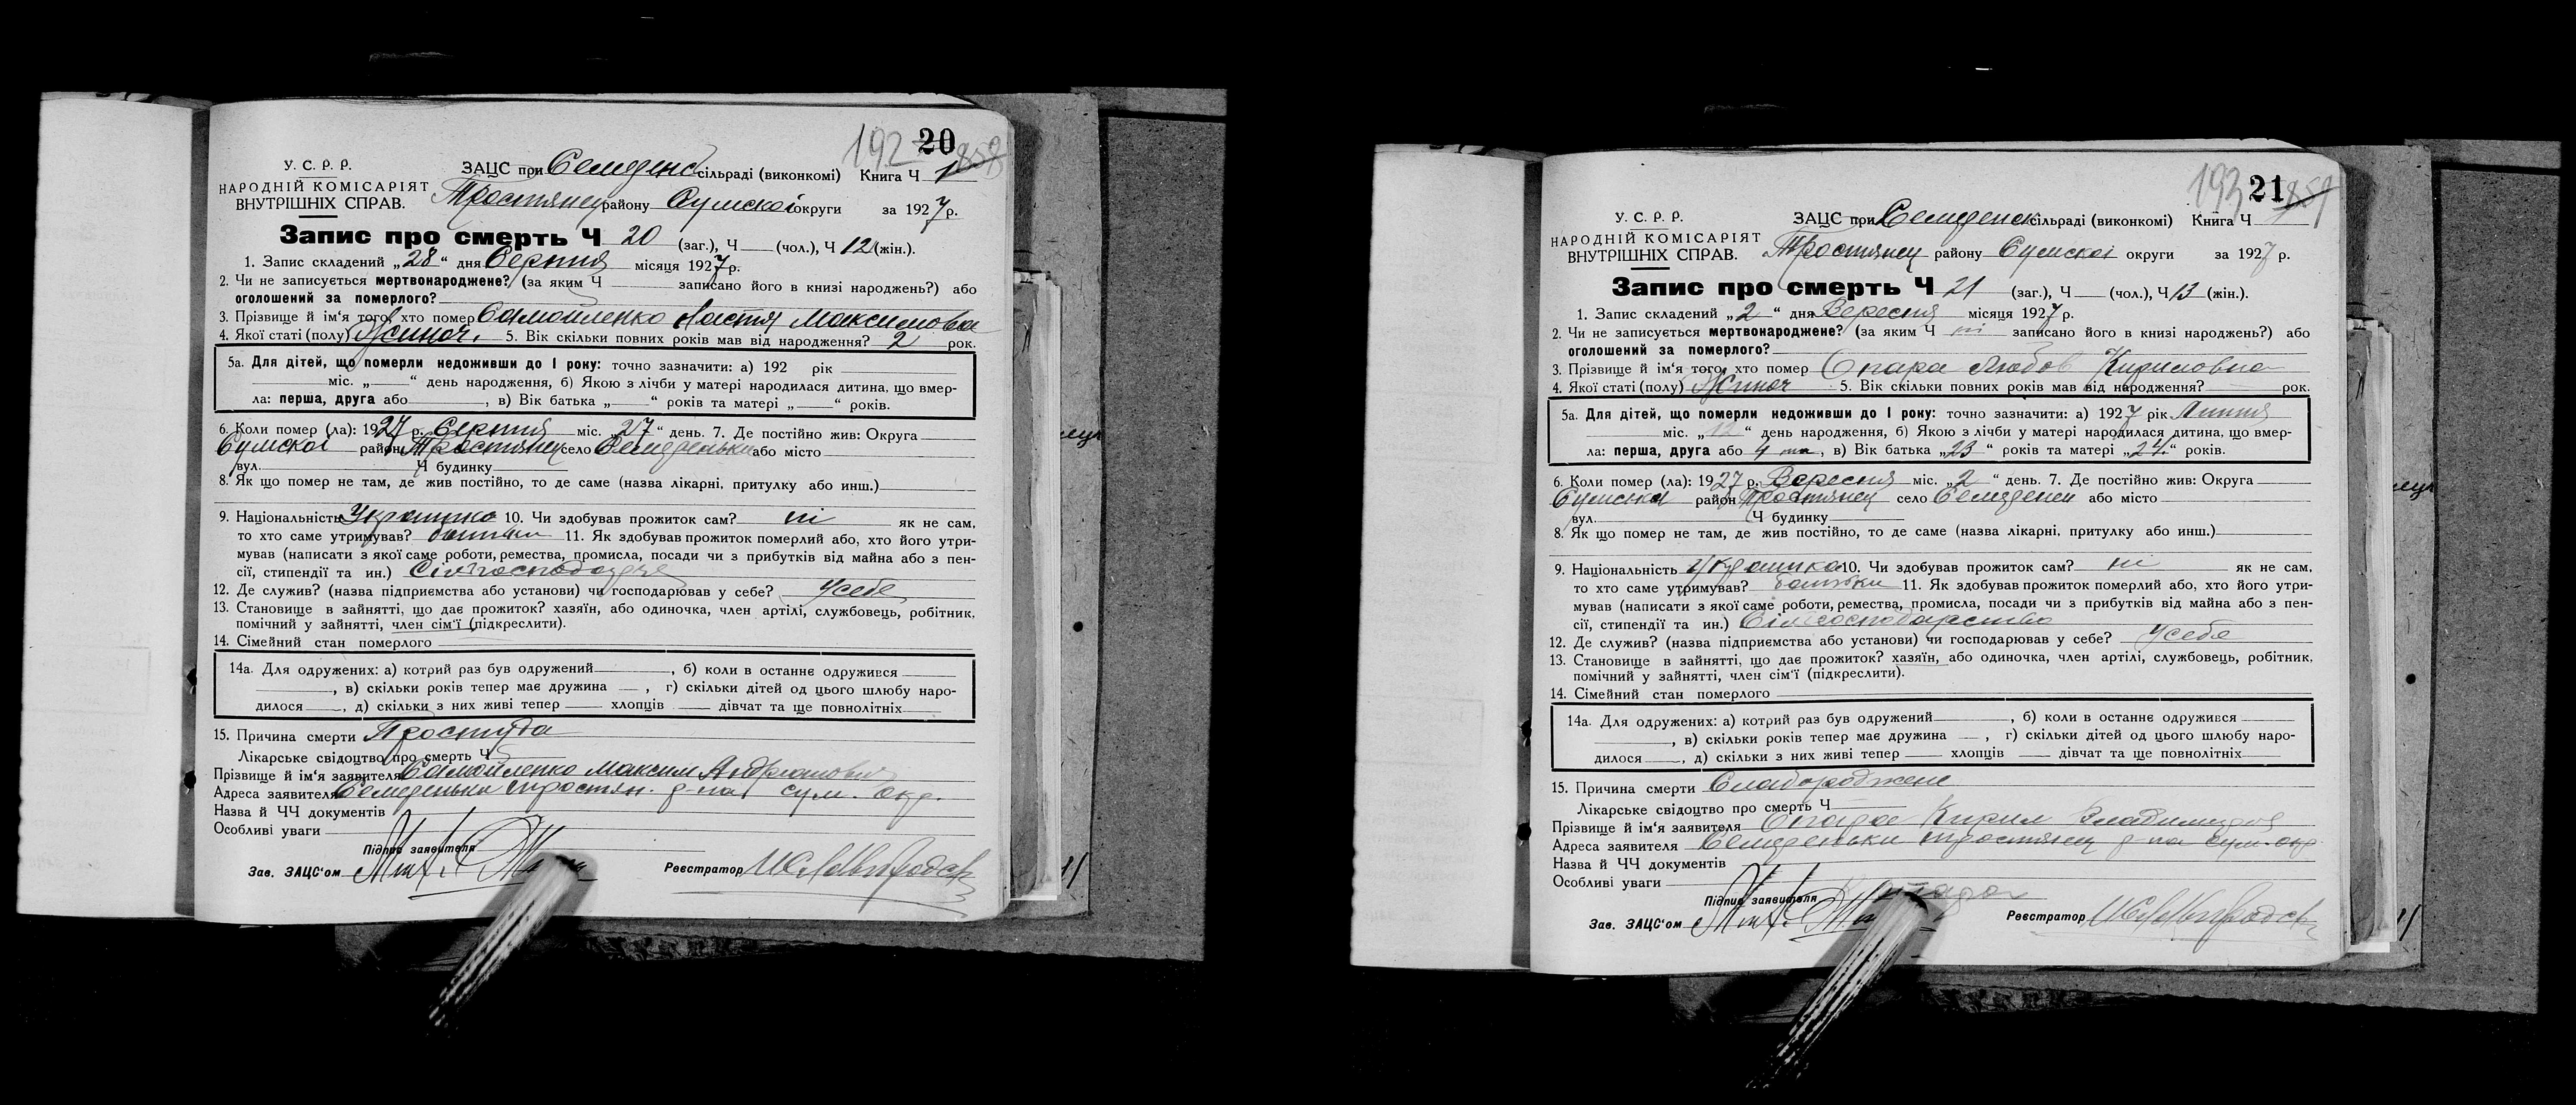 192 20 859
У. С. Р. Р.
НАРОДНІЙ КОМІСАРІЯТ
ВНУТРІШНІХ СПРАВ.
ЗАЦС при Семеренс сільраді (виконкомі) Книга Ч 1
Тростянец району Сумскої округи за 1927 р.
Запис про смерть Ч 20 (заг.), Ч (чол.), Ч 12 (жін.).
1. Запис складений „28“ дня Серпня місяця 1927 р.
2. Чи не записується мертвонароджене? (за яким Ч записано його в книзі народжень?) або
оголошений за померлого?
3. Прізвище й ім'я того, хто помер Самойленко Настя Максимовна
4. Якої статі (полу) Жиноч. 5. Вік скільки повних років мав від народження? 2 рок.
5а. Для дітей, що померли недоживши до 1 року: точно зазначити: а) 192 рік
міс. „ “ день народження, б) Якою з лічби у матері народилася дитина, що вмер-
ла: перша, друга або , в) Вік батька „ “ років та матері „ “ років.
6. Коли помер (ла): 1927 р. Серпня міс. 27 “ день. 7. Де постійно жив: Округа
Сумскої район Тростянец село Семереньки або місто
вул. Ч будинку
8. Як що помер не там, де жив постійно, то де саме (назва лікарні, притулку або инш.)
9. Національність Украинка 10. Чи здобував прожиток сам? ні як не сам,
то хто саме утримував? батьки 11. Як здобував прожиток померлий або, хто його утри-
мував (написати з якої саме роботи, ремества, промисла, посади чи з прибутків від майна або з пен-
сії, стипендії та ин.)
12. Де служив? (назва підприємства або установи) чи господарював у себе? у себе
13. Становище в зайнятті, що дає прожиток? хазяїн, або одиночка, член артілі, службовець, робітник,
помічний у зайнятті, член сім'ї (підкреслити).
14. Сімейний стан померлого
14а. Для одружених: а) котрий раз був одружений , б) коли в останнє одружився
, в) скільки років тепер має дружина , г) скільки дітей од цього шлюбу наро-
дилося , д) скільки з них живі тепер хлопців дівчат та ще повнолітніх
15. Причина смерти Простуда
Лікарське свідоцтво про смерть Ч
Прізвище й ім'я заявителя Самойленко Максим Андріянович
Адреса заявителя Семереньки тростян. р-на сум. окр.
Назва й ЧЧ документів
Особливі уваги
Підпис заявителя
Зав. ЗАЦС'ом Реєстратор
193 21 859
У. С. Р. Р.
НАРОДНІЙ КОМІСАРІЯТ
ВНУТРІШНІХ СПРАВ.
ЗАЦС при Семеренск сільраді (виконкомі) Книга Ч 1
Тростянец району Сумскої округи за 1927 р.
Запис про смерть Ч 21 (заг.), Ч (чол.), Ч 13 (жін.).
1. Запис складений „2“ дня Вересня місяця 1927 р.
2. Чи не записується мертвонароджене? (за яким Ч ні записано його в книзі народжень?) або
оголошений за померлого?
3. Прізвище й ім'я того, хто помер Опара Любов Кириловна
4. Якої статі (полу) Жиноч 5. Вік скільки повних років мав від народження? рок.
5а. Для дітей, що померли недоживши до 1 року: точно зазначити: а) 1927 рік Липня
міс. „12“ день народження, б) Якою з лічби у матері народилася дитина, що вмер-
ла: перша, друга або 4 та, в) Вік батька „23“ років та матері „24“ років.
6. Коли помер (ла): 1927 р. Вересня міс. „2“ день. 7. Де постійно жив: Округа
Сумська район Тростянец село Семерени або місто
вул. Ч будинку
8. Як що помер не там, де жив постійно, то де саме (назва лікарні, притулку або инш.)
9. Національність Украинка 10. Чи здобував прожиток сам? ні як не сам,
то хто саме утримував? батьки 11. Як здобував прожиток померлий або, хто його утри-
мував (написати з якої саме роботи, ремества, промисла, посади чи з прибутків від майна або з пен-
сії, стипендії та ин.) Сільгосподарство
12. Де служив? (назва підприємства або установи) чи господарював у себе? у себе
13. Становище в зайнятті, що дає прожиток? хазяїн, або одиночка, член артілі, службовець, робітник,
помічний у зайнятті, член сім'ї (підкреслити).
14. Сімейний стан померлого
14а. Для одружених: а) котрий раз був одружений , б) коли в останнє одружився
, в) скільки років тепер має дружина , г) скільки дітей од цього шлюбу наро-
дилося , д) скільки з них живі тепер хлопців дівчат та ще повнолітніх
15. Причина смерти Слаборождене
Лікарське свідоцтво про смерть Ч
Прізвище й ім'я заявителя Опара Кирил Владимиров
Адреса заявителя Семереньки тростянец р-на сум. окр
Назва й ЧЧ документів
Особливі уваги
Підпис заявителя Опара
Зав. ЗАЦС'ом Реєстратор